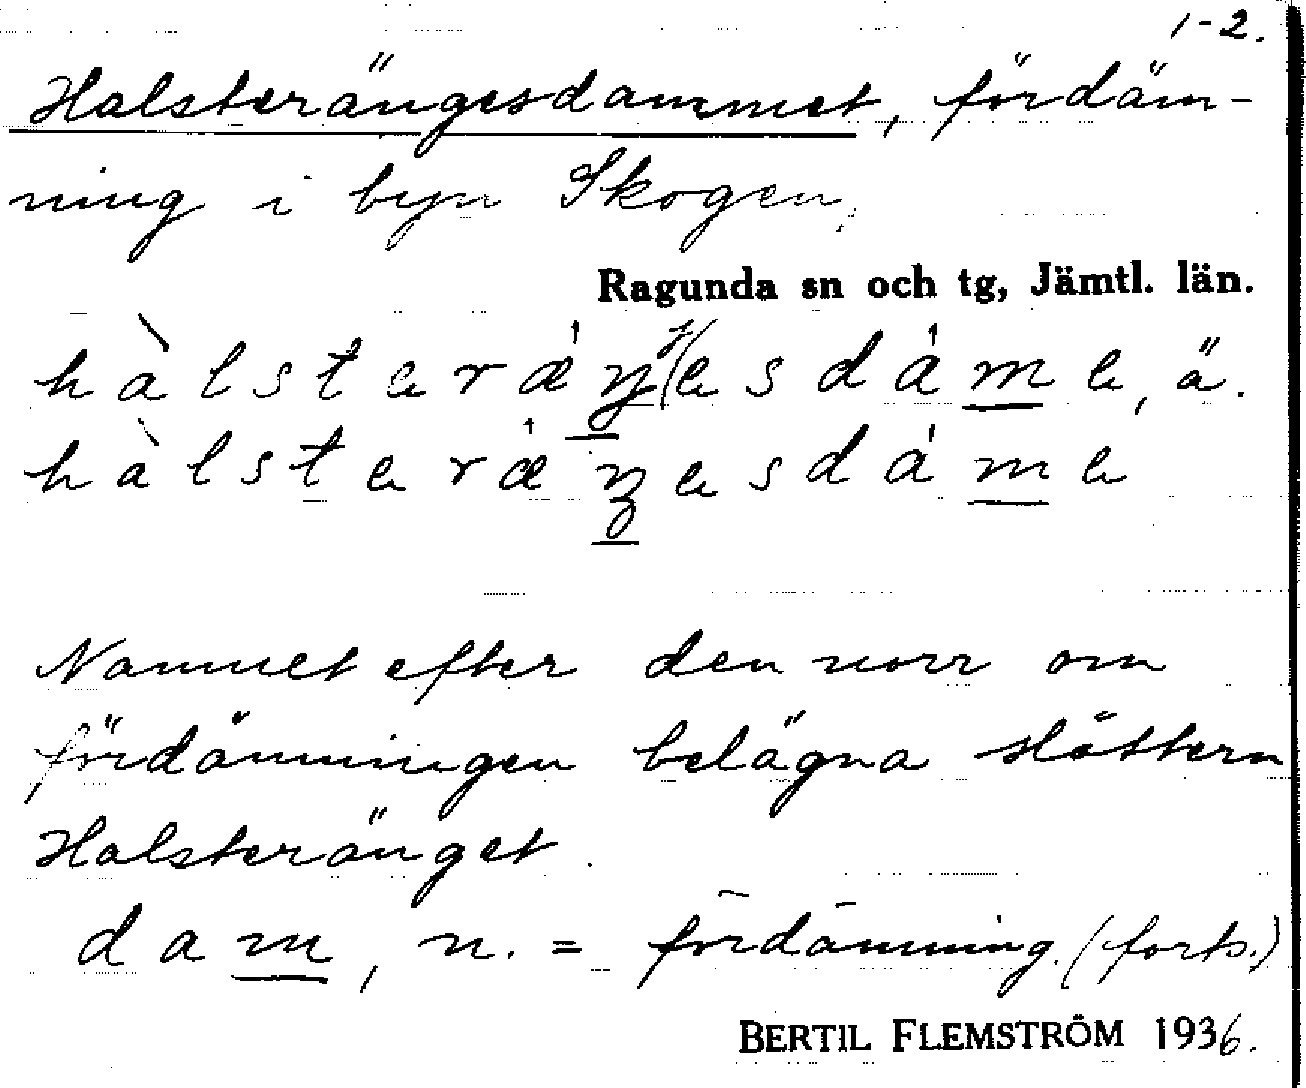 1-2.
Halsterängesdammet, fördäm-
ning i byn Skogen,
Ragunda sn och tg, Jämtl. län.
hàlsteræ̍ŋ(j)esda̍me, ä.
hàlsteræ̍ŋesda̍me
Namnet efter den norr om
fördämningen belägna slåttern
Halsteränget.
dam, n. = fördämning. (forts.)
BERTIL FLEMSTRÖM 1936.